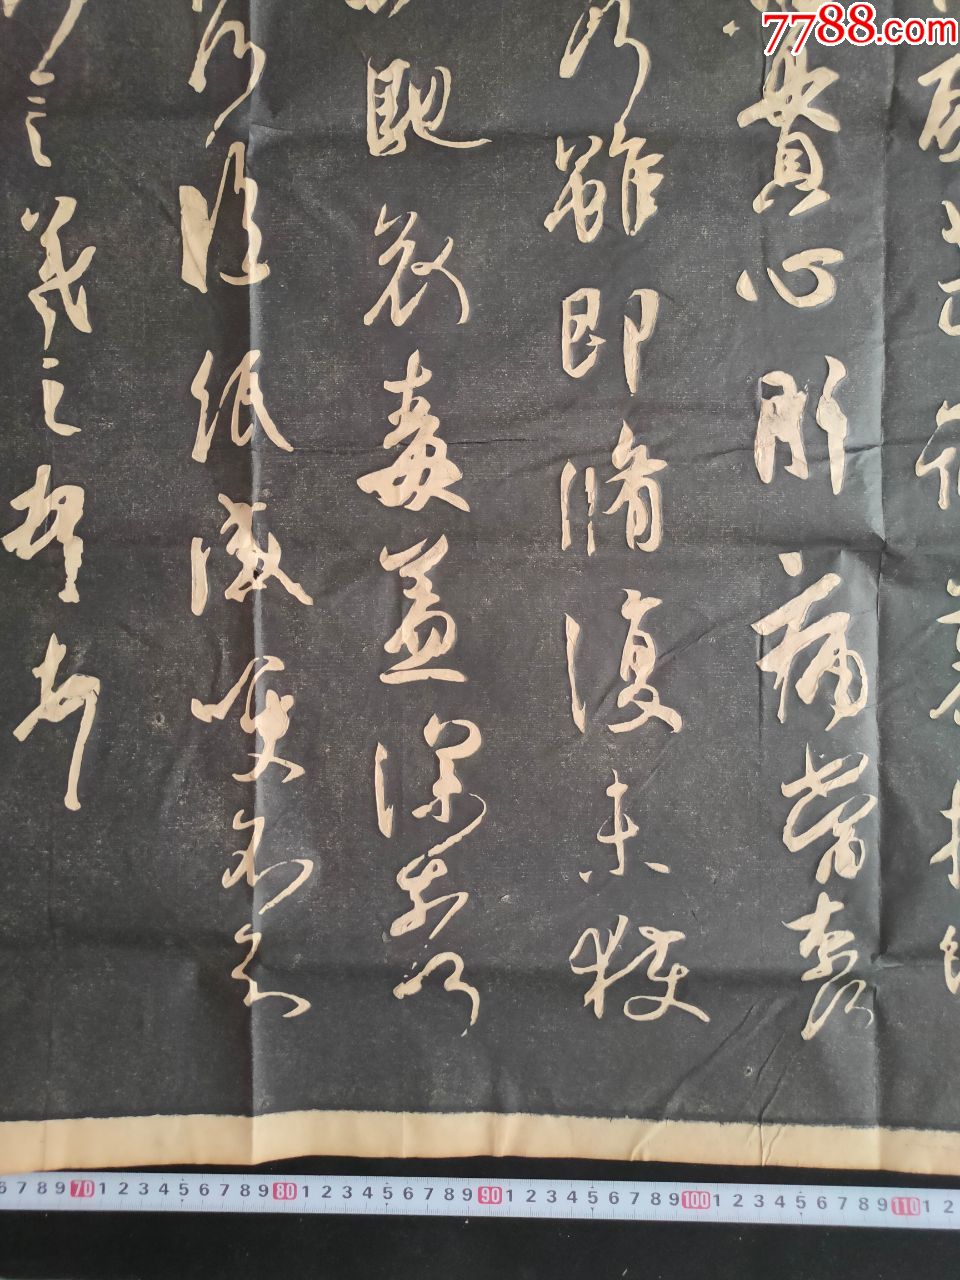 7788.com
貫心肝痛當奈何
雖即脩復未獲
馳哀毒益深奈何
何臨紙感哽不知
言羲之頓首
6 7 8 9 70 1 2 3 4 5 6 7 8 9 80 1 2 3 4 5 6 7 8 9 90 1 2 3 4 5 6 7 8 9 100 1 2 3 4 5 6 7 8 9 110 1 2